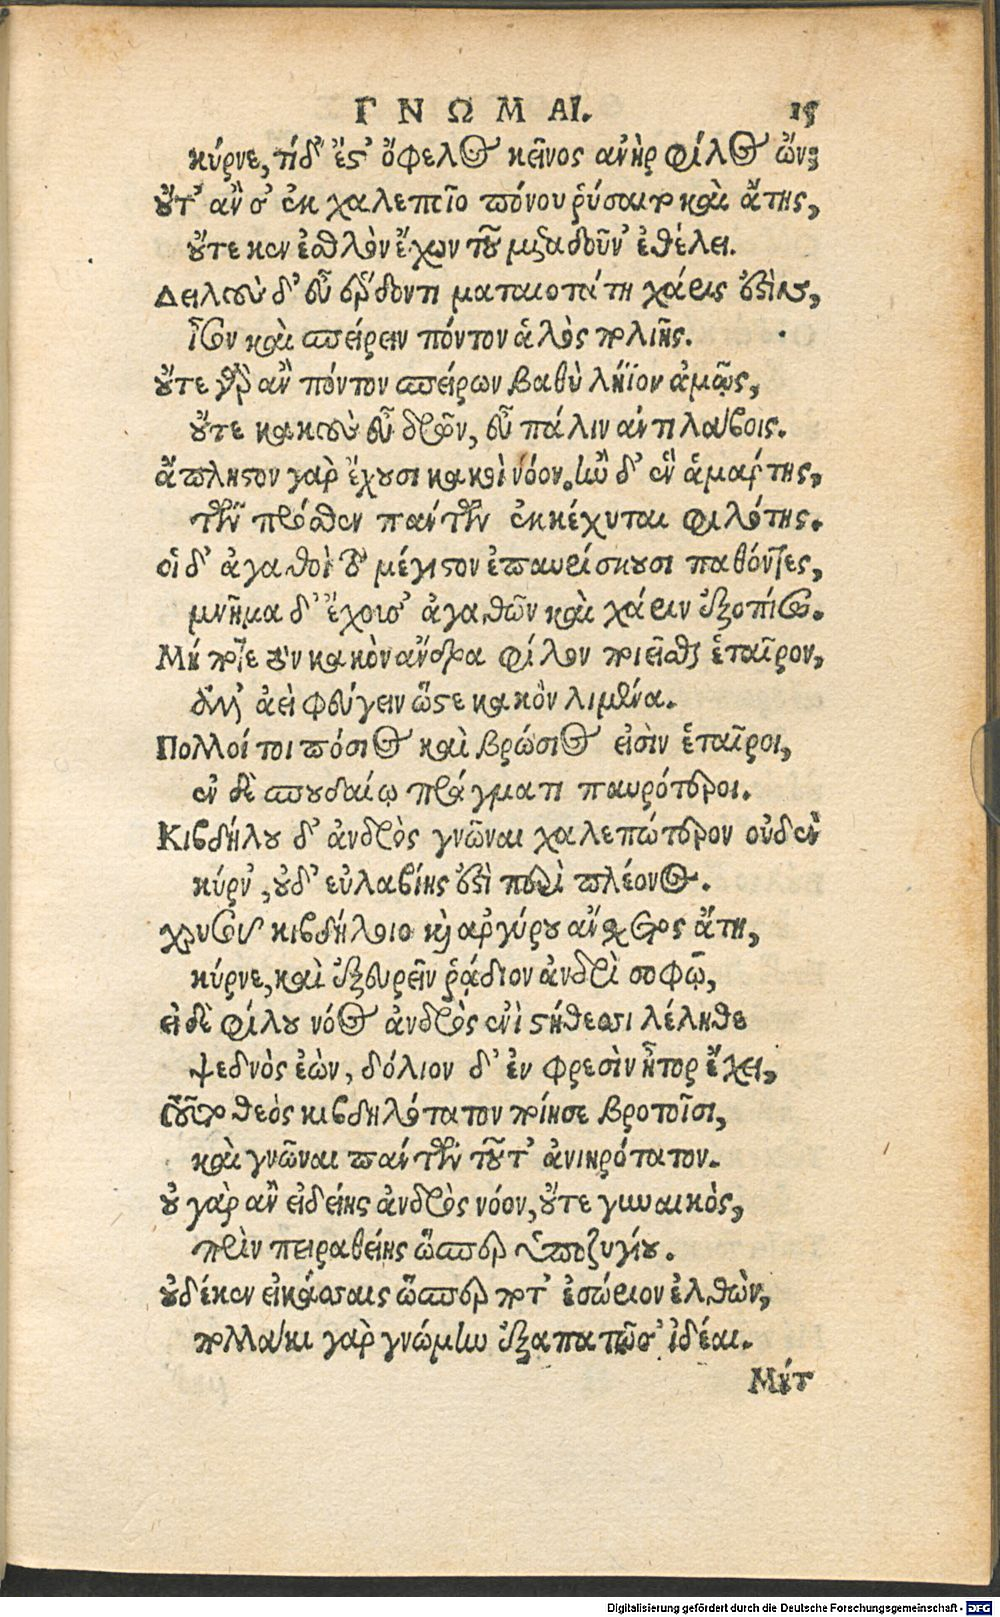 ΓΝΩΜΑΙ. 15
κύρνε, τί δ' ἔστ' ὄφελος κεῖνος ἀνὴρ φίλος ὤν;
οὔτ' ἄν σ' ἐκ χαλεποῖο πόνου ῥύσαιτο καὶ ἄτης,
οὔτε κεν ἐσθλὸν ἔχων τοῦ μεταδοῦν' ἐθέλει.
Δειλοὺς δ' εὖ ἔρδοντι ματαιοτάτη χάρις ἐστὶν,
ἶσον καὶ σπείρειν πόντον ἁλὸς πολιῆς.
οὔτε γὰρ ἂν πόντον σπείρων βαθὺ λήϊον ἀμῷς,
οὔτε κακοὺς εὖ δρῶν, εὖ πάλιν ἀντιλάβοις.
ἄπληστον γὰρ ἔχουσι κακοὶ νόον. ἢν δ' ἓν ἁμάρτης,
τῶν πρόσθεν πάντων ἐκκέχυται φιλότης.
οἱ δ' ἀγαθοὶ τὸ μέγιστον ἐπαυρίσκουσι παθόντες,
μνῆμα δ' ἔχοισ' ἀγαθῶν καὶ χάριν ἐξοπίσω.
Μή ποτε τὸν κακὸν ἄνδρα φίλον ποιεῖσθαι ἑταῖρον,
ἀλλ' ἀεὶ φεύγειν ὥστε κακὸν λιμένα.
Πολλοί τοι πόσιος καὶ βρώσιος εἰσὶν ἑταῖροι,
ἐν δὲ σπουδαίῳ πράγματι παυρότεροι.
Κιβδήλου δ' ἀνδρὸς γνῶναι χαλεπώτερον οὐδὲν
κύρν', οὐδ' εὐλαβίης ἐστὶ περὶ πλέονος.
χρυσοῦ κιβδήλοιο καὶ ἀργύρου ἄνσχετος ἄτη,
κύρνε, καὶ ἐξευρεῖν ῥᾴδιον ἀνδρὶ σοφῷ,
εἰ δὲ φίλου νόος ἀνδρὸς ἐνὶ στήθεσσι λέληθε
ψεδνὸς ἐὼν, δόλιον δ' ἐν φρεσὶν ἦτορ ἔχει,
τοῦτο θεὸς κιβδηλότατον ποίησε βροτοῖσι,
καὶ γνῶναι πάντων τοῦτ' ἀνιηρότατον.
οὐ γὰρ ἂν εἰδείης ἀνδρὸς νόον, οὔτε γυναικὸς,
πρὶν πειραθείης ὥσπερ ὑποζυγίου.
οὐδέ κεν εἰκάσσαις ὥσπερ ποτ' ἐσώριον ἐλθὼν,
πολλάκι γὰρ γνώμην ἐξαπατῶσ' ἰδέαι.
Μήτ